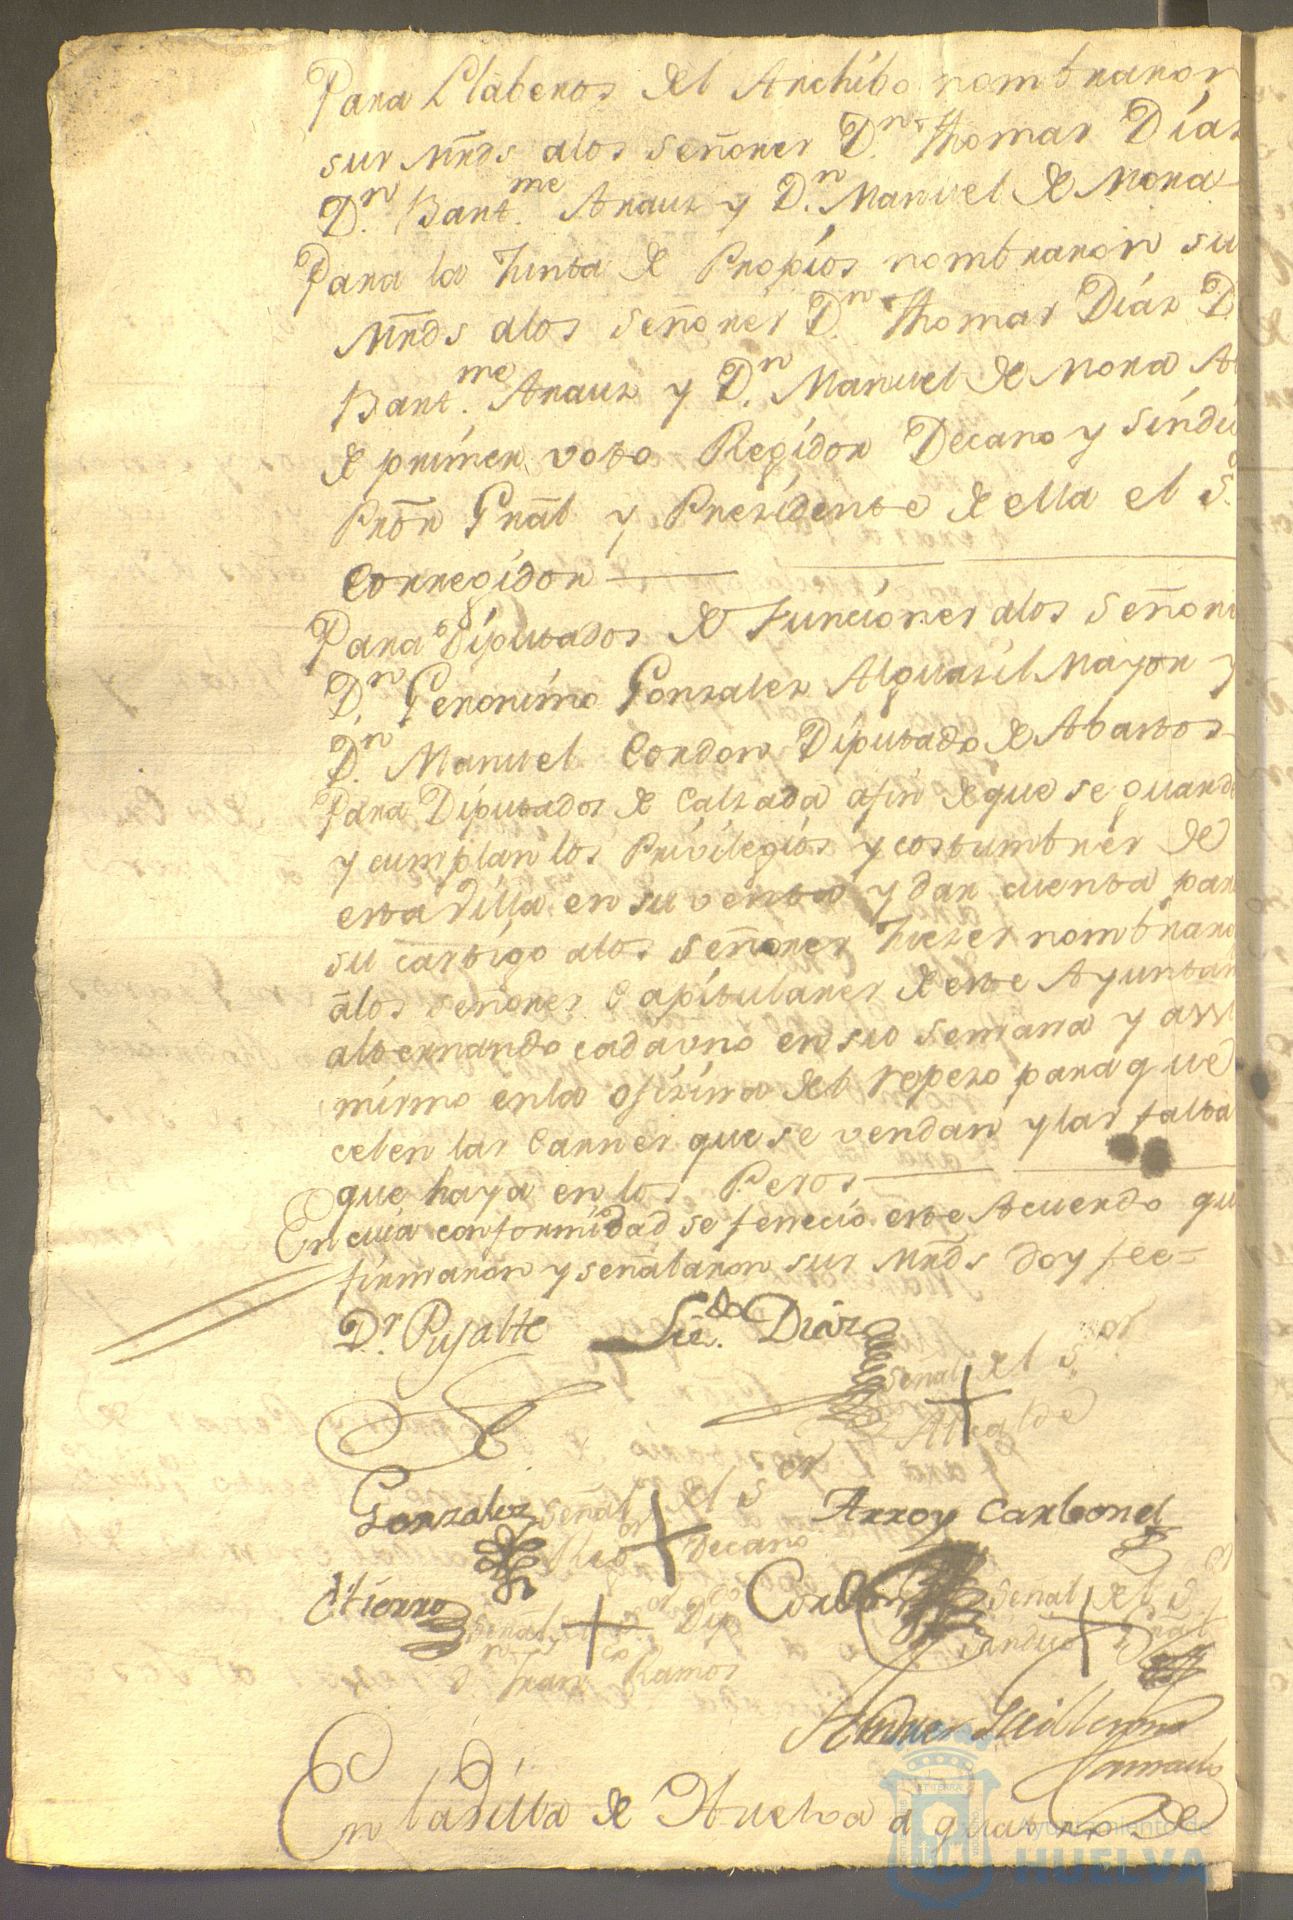 Para Llaberos del Archibo nombraron
sus Mrds alos señores Dn. Thomas Díaz
Dn. Bartme. Arauz y Dn. Manuel de Mora
Para la Junta de Propíos nombraron su
Mrds alos señores Dn. Thomas Díaz D
Bartme. Arauz y Dn. Manuel de Mora Al
de prímer voto Regídor Decano y Síndi
Pror Gral y Presídente de ella el So.
Corregídor
Para Díputados de Funcíones alos Señore
Dn. Geronímo Gonzalez Alguazíl Mayor y
Dn. Manuel Cordon Díputado de Abastos
Para Díputados de Calzada afin de que se guarde
y cumplan los Privilegios y costumbres de
esta Villa en su venta y dar cuenta par
su castígo alos señores Juezes nombraro
alos señores Capítulares de este Ayuntam
alternando cada uno en su semana y assi
mismo en la ofízína del repeso para que
celen las Carnes que se vendan y las falta
que haya en los Pesos
En cuia conformidad se fenecío este Acuerdo qu
firmaron y señalaron sus Mrds doy fee=
Dr. Pujalte Licdo. Díaz
señal del Sor.
Alcalde
Gonzalez señal del Sor Arroy Carbonel
Rexor Decano
Señal del Sor Dipdo Cordon Señal del S
Dn Franco Ramos Sindico Gral
En la Villa de Huelva a quatro de
Ayuntamiento de
HUELVA